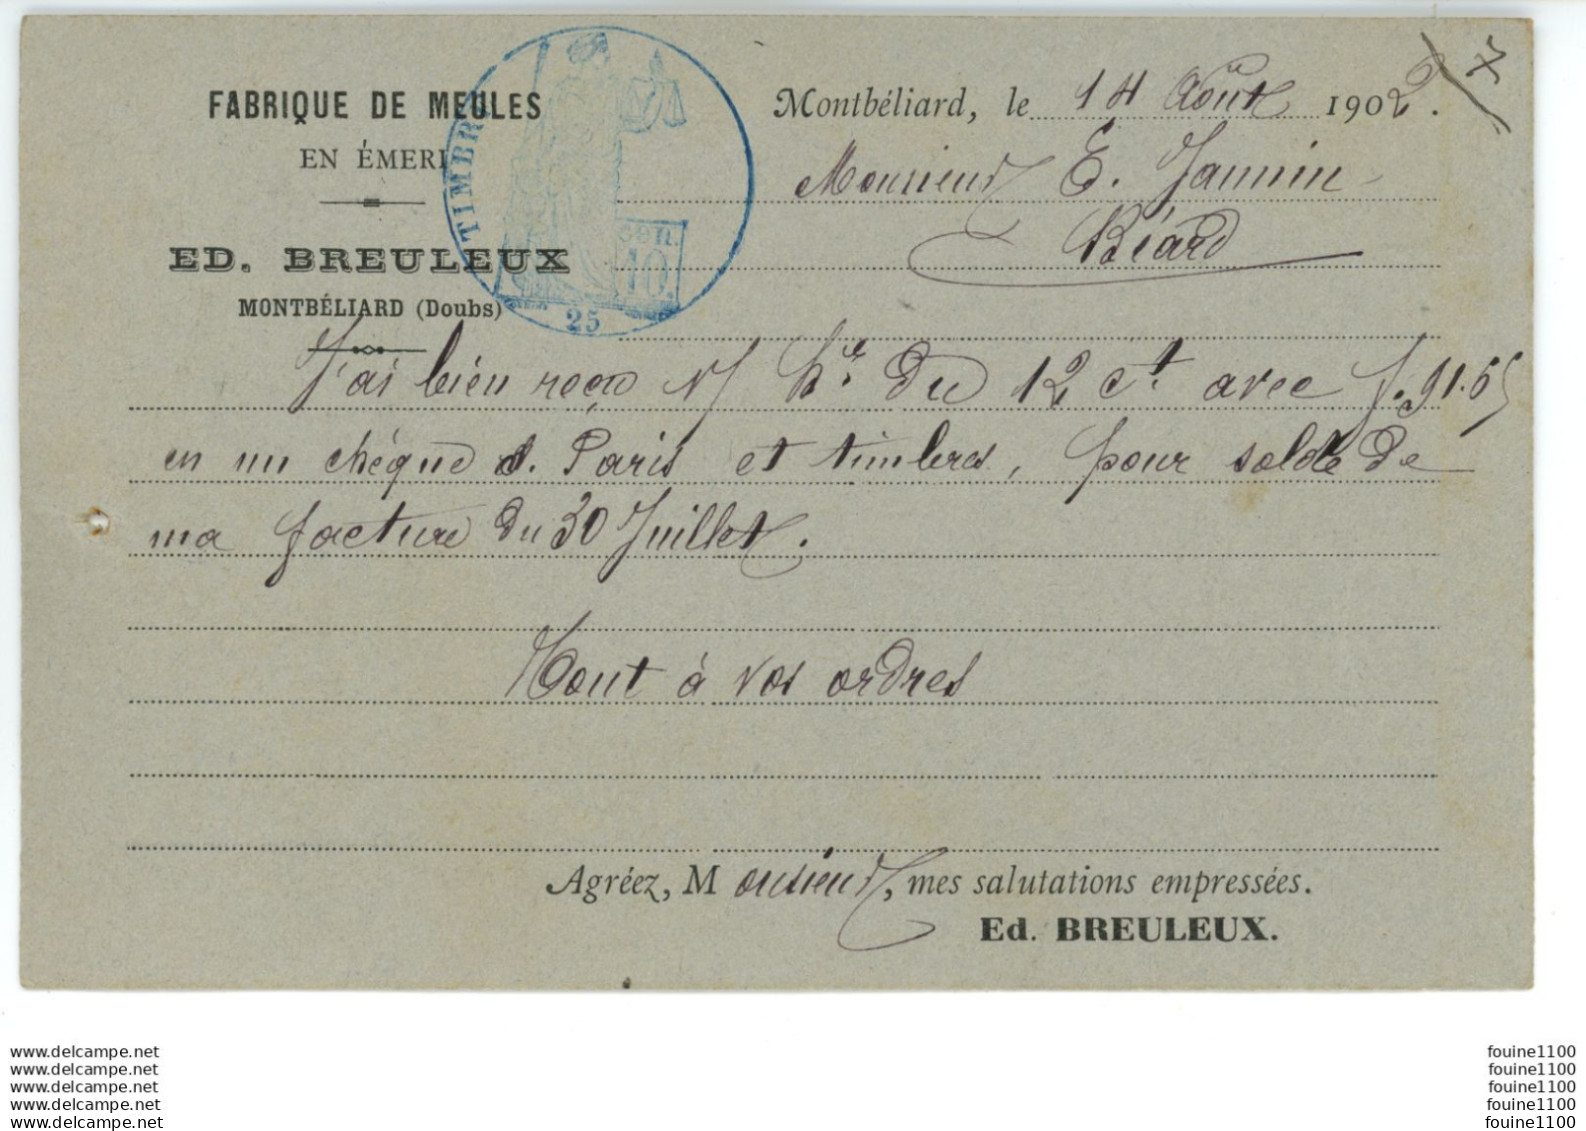 FABRIQUE DE MEULES
EN ÉMERI
ED. BREULEUX
MONTBÉLIARD (Doubs)
TIMBRE
CEN.
10.
25
Montbéliard, le 14 Août 1902.
Monsieur E. Jannin
Béard
J'ai bien reçu V/ hre du 12 ct. avec f. 91.65
en un chéque s. Paris et timbres, pour solde de
ma facture du 30 Juillet.
Tout à vos ordres
Agréez, Monsieur, mes salutations empressées.
Ed. BREULEUX.
www.delcampe.net
www.delcampe.net
www.delcampe.net
www.delcampe.net
www.delcampe.net
fouine1100
fouine1100
fouine1100
fouine1100
fouine1100